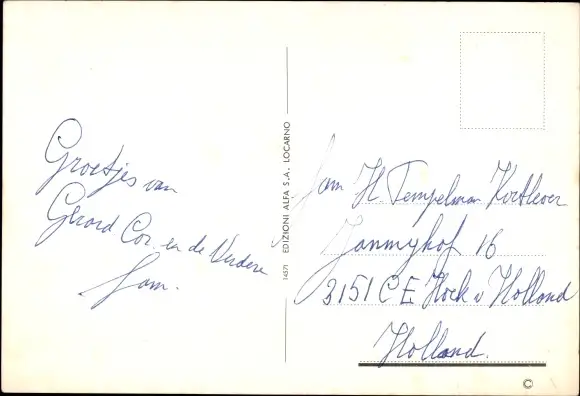 Groetjes van
Gerard Cor. en de Verdere
Fam.
14371 EDIZIONI ALFA S.A. LOCARNO
Fam H. Tempelman Kortlever
3151 CE Hoek v Holland
Holland.
©